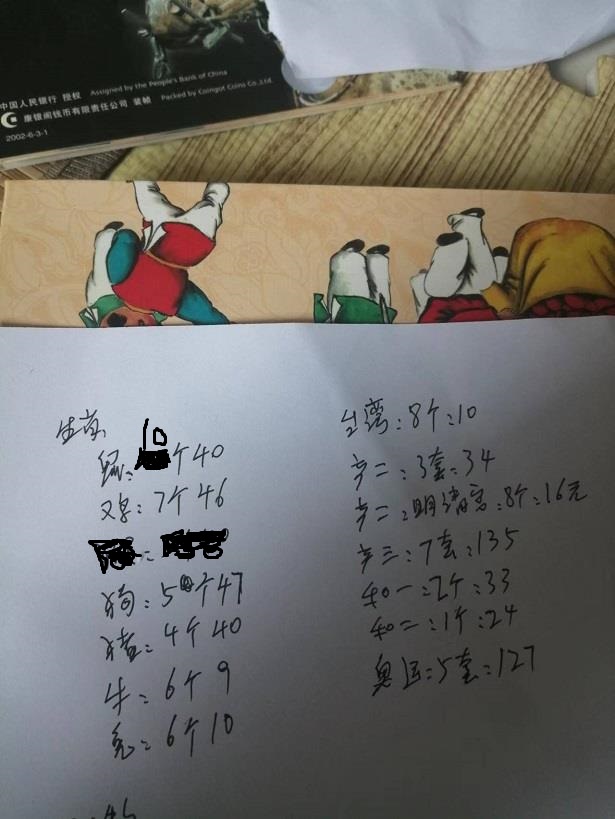 中国人民银行 授权 Assigned by the People's Bank of China
康银阁钱币有限责任公司 装帧 Packed by Coingot Coins Co.,Ltd.
2002-6-3-1
生肖
10个40
鸡：7个46
狗：5个47
猪：4个40
牛：6个9
兔：6个10
台湾：8个：10
二：3套：34
二：明清宫：8个：16元
三：7套：135
和一：2个：33
和二：1个：24
奥运：5套：127